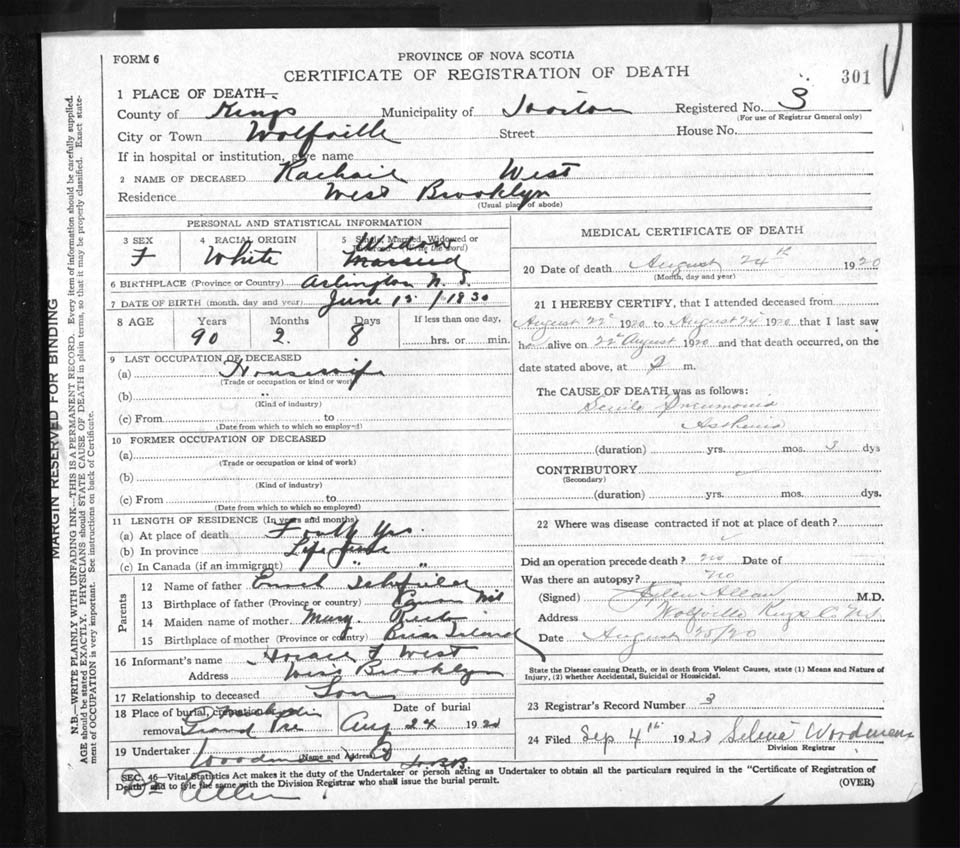 FORM 6
PROVINCE OF NOVA SCOTIA
CERTIFICATE OF REGISTRATION OF DEATH
301
1 PLACE OF DEATH—
County of Kings Municipality of Registered No. 3
(For use of Registrar General only)
City or Town Wolfville Street House No.
If in hospital or institution, give name
2 NAME OF DECEASED West
Residence West Brooklyn
(Usual place of abode)
PERSONAL AND STATISTICAL INFORMATION
3 SEX 4 RACIAL ORIGIN 5 Single, Married, Widowed or
F White Widow Married
6 BIRTHPLACE (Province or Country) Arlington N. S.
7 DATE OF BIRTH (month, day and year) June 1830
8 AGE Years Months Days If less than one day,
90 2. 8 hrs. or min.
9 LAST OCCUPATION OF DECEASED
(a) Housewife
(Trade or occupation or kind or work)
(b)
(Kind of industry)
(c) From to
(Date from which to which so employed)
10 FORMER OCCUPATION OF DECEASED
(a)
(Trade or occupation or kind of work)
(b)
(Kind of industry)
(c) From to
(Date from which to which so employed)
11 LENGTH OF RESIDENCE (In years and months)
(a) At place of death Yrs.
(b) In province Life time
(c) In Canada (if an immigrant) " "
Parents
12 Name of father
13 Birthplace of father (Province or country)
14 Maiden name of mother Mary
15 Birthplace of mother (Province or country) Island
16 Informant's name Horace F West
Address West Brooklyn
17 Relationship to deceased Son
18 Place of burial, cremation or Date of burial
removal Grand Pre Aug 24 1920
19 Undertaker
(Name and Address)
MEDICAL CERTIFICATE OF DEATH
20 Date of death August 24th 1920
(Month, day and year)
21 I HEREBY CERTIFY, that I attended deceased from
August 22 1920 to August 24 1920 that I last saw
h alive on 22 August 1920 and that death occurred, on the
date stated above, at 2 m.
The CAUSE OF DEATH was as follows:
Senile Pneumonia
Asthenia
(duration) yrs. mos. 3 dys
CONTRIBUTORY
(Secondary)
(duration) yrs. mos. dys.
22 Where was disease contracted if not at place of death?
Did an operation precede death? no Date of
Was there an autopsy? no
(Signed) Allen M.D.
Address Wolfville Kings Co. N.S
Date August 25/20
State the Disease causing Death, or in death from Violent Causes, state (1) Means and Nature of
Injury, (2) whether Accidental, Suicidal or Homicidal.
23 Registrar's Record Number 3
24 Filed Sep 4th 1920
Division Registrar
SEC. 46—Vital Statistics Act makes it the duty of the Undertaker or person acting as Undertaker to obtain all the particulars required in the "Certificate of Registration of
Death" and to file the same with the Division Registrar who shall issue the burial permit. (OVER)
Dr Allen
MARGIN RESERVED FOR BINDING
N.B.—WRITE PLAINLY WITH UNFADING INK—THIS IS A PERMANENT RECORD. Every item of information should be carefully supplied.
AGE should be stated EXACTLY. PHYSICIANS should STATE CAUSE OF DEATH in plain terms, so that it may be properly classified. Exact state-
ment of OCCUPATION is very important. See instructions on back of Certificate.